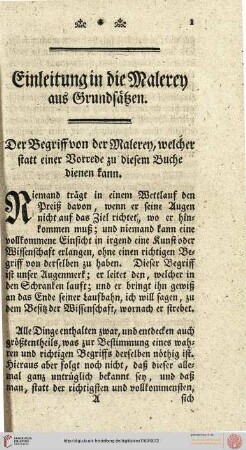 1
Einleitung in die Malerey
aus Grundsätzen.
Der Begriff von der Malerey, welcher
statt einer Vorrede zu diesem Buche
dienen kann.
Niemand trägt in einem Wettlauf den
Preiß davon, wenn er seine Augen
nicht auf das Ziel richtet, wo er hin-
kommen muß; und niemand kann eine
vollkommene Einsicht in irgend eine Kunst oder
Wissenschaft erlangen, ohne einen richtigen Be-
griff von derselben zu haben. Dieser Begriff
ist unser Augenmerk; er leitet den, welcher in
den Schranken lauft; und er bringt ihn gewiß
an das Ende seiner Laufbahn, ich will sagen, zu
dem Besitz der Wissenschaft, wornach er strebet.
Alle Dinge enthalten zwar, und entdecken auch
größtentheils, was zur Bestimmung eines wah-
ren und richtigen Begriffs derselben nöthig ist.
Hieraus aber folgt noch nicht, daß dieser alle-
mal ganz untrüglich bekannt sey, und daß
man, statt der richtigsten und vollkommensten,
A sich
http://digi.ub.uni-heidelberg.de/diglit/
UNIVERSITÄTS-
BIBLIOTHEK
HEIDELBERG